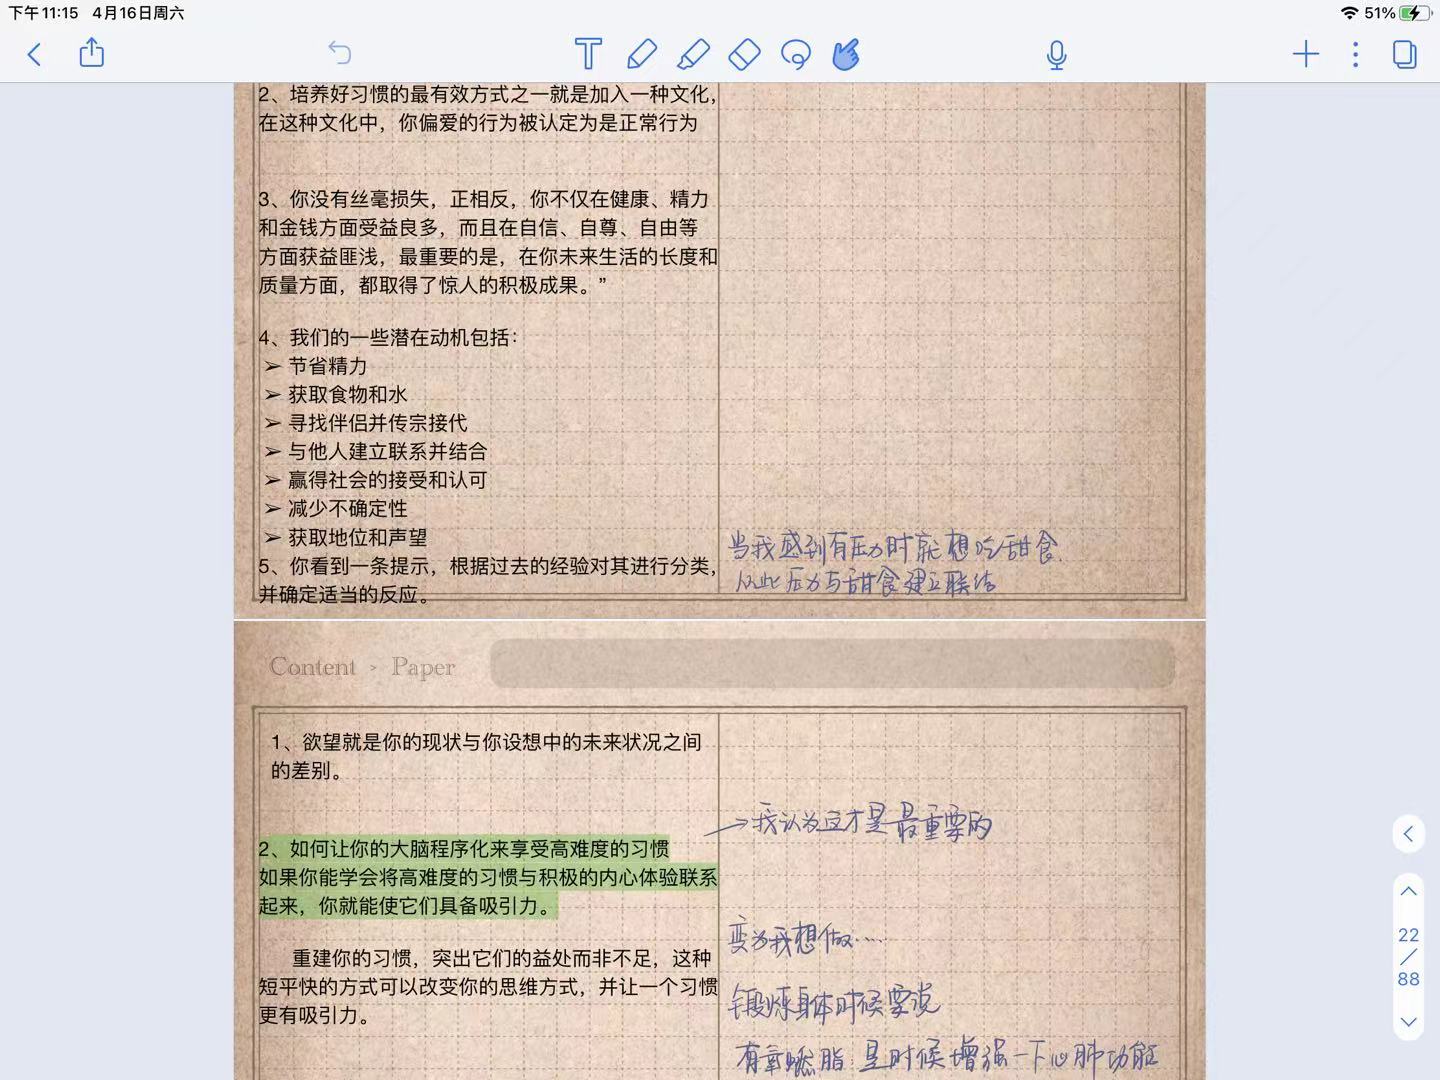 下午11:15 4月16日周六
51%
2、培养好习惯的最有效方式之一就是加入一种文化，
在这种文化中，你偏爱的行为被认定为是正常行为
3、你没有丝毫损失，正相反，你不仅在健康、精力
和金钱方面受益良多，而且在自信、自尊、自由等
方面获益匪浅，最重要的是，在你未来生活的长度和
质量方面，都取得了惊人的积极成果。”
4、我们的一些潜在动机包括：
➢ 节省精力
➢ 获取食物和水
➢ 寻找伴侣并传宗接代
➢ 与他人建立联系并结合
➢ 赢得社会的接受和认可
➢ 减少不确定性
➢ 获取地位和声望
5、你看到一条提示，根据过去的经验对其进行分类，
并确定适当的反应。
当我感到有压力时就想吃甜食.
从此压力与甜食建立联结
Content > Paper
1、欲望就是你的现状与你设想中的未来状况之间
的差别。
→我认为这才是最重要的
2、如何让你的大脑程序化来享受高难度的习惯
如果你能学会将高难度的习惯与积极的内心体验联系
起来，你就能使它们具备吸引力。
变为我想做……
重建你的习惯，突出它们的益处而非不足，这种
短平快的方式可以改变你的思维方式，并让一个习惯
更有吸引力。
锻炼身体时候要说
有氧燃脂 是时候增强一下心肺功能
22
/
88